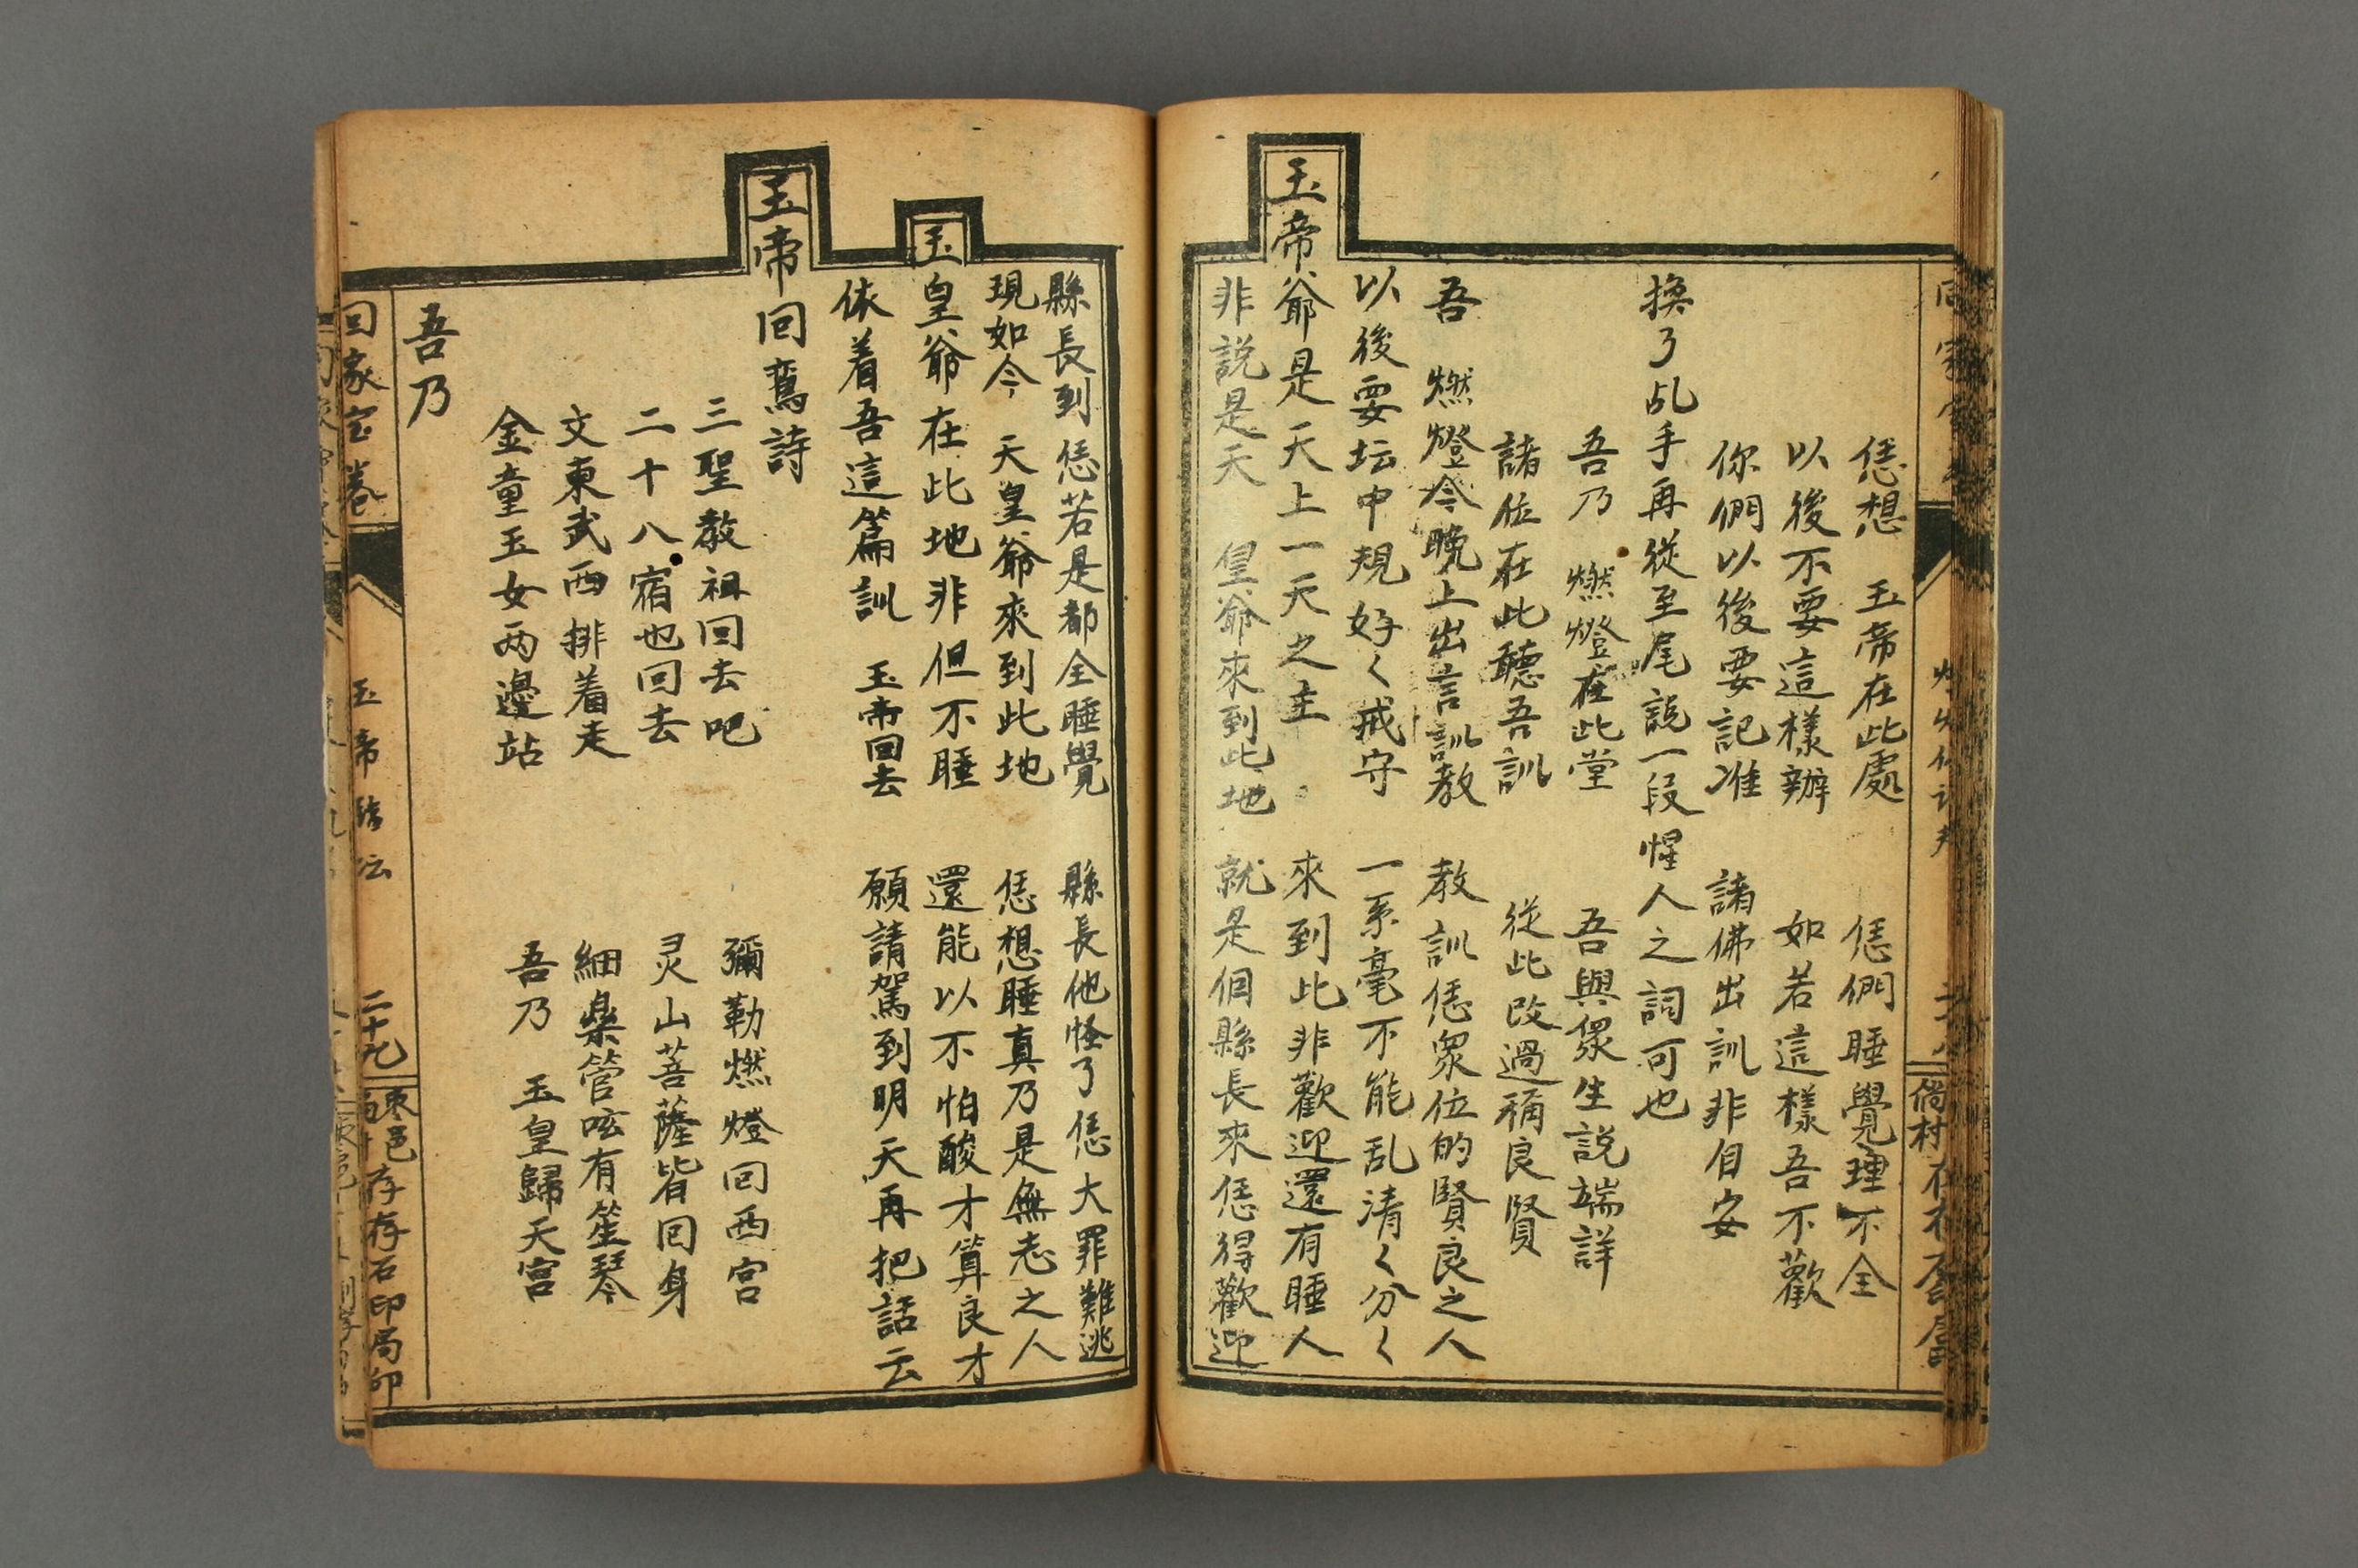 恁想　玉帝在此處　恁們睡覺理不全
以後不要這樣辦　如若這樣吾不歡
你們以後要記准　諸佛出訓非自安
換了乩手再從至尾說一段惺人之詞可也
吾乃　燃燈在此堂　吾與衆生説端詳
諸位在此聽吾訓　從此改過稱良賢
吾　燃燈今晚上出言訓教　教訓恁衆位的賢良之人
以後要坛中規好〱戒守　一系毫不能乱清〱分〱
玉帝爺是天上一天之主　來到此非歡迎還有睡人
非説是天　皇爺來到此地　就是個縣長來恁得歡迎
縣長到恁若是都全睡覺　縣長他怪了恁大罪難逃
現如今　天皇爺來到此地　恁想睡真乃是無志之人
玉皇爺在此地非但不睡　還能以不怕酸才算良才
依着吾這篇訓　玉帝回去　願請駕到明天再把話云
玉帝回鸞詩
三聖教祖回去吧　彌勒燃燈回西宫
二十八宿也回去　灵山菩薩皆回身
文東武西排着走　細樂管呟有笙琴
金童玉女两邊站　吾乃　玉皇歸天宫
吾乃
回家宝卷　玉帝臨坛　二十九　棗邑　存存石印局印